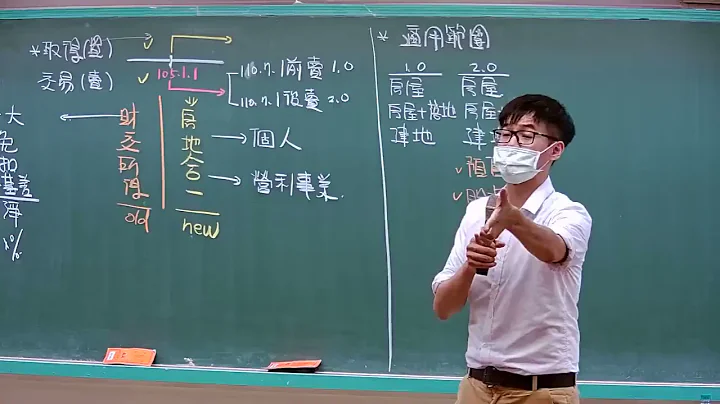 *取得(買) ✓
交易(賣) ✓ 105.1.1
110.7.1前賣 1.0
110.7.1後賣 2.0
大
免
扣
基差
淨
x%
財交所得
old
房地合一
new
個人
營利事業
* 適用範圍
1.0 2.0
房屋 房屋
房屋+落地 房屋+
建地 建
✓預
✓股